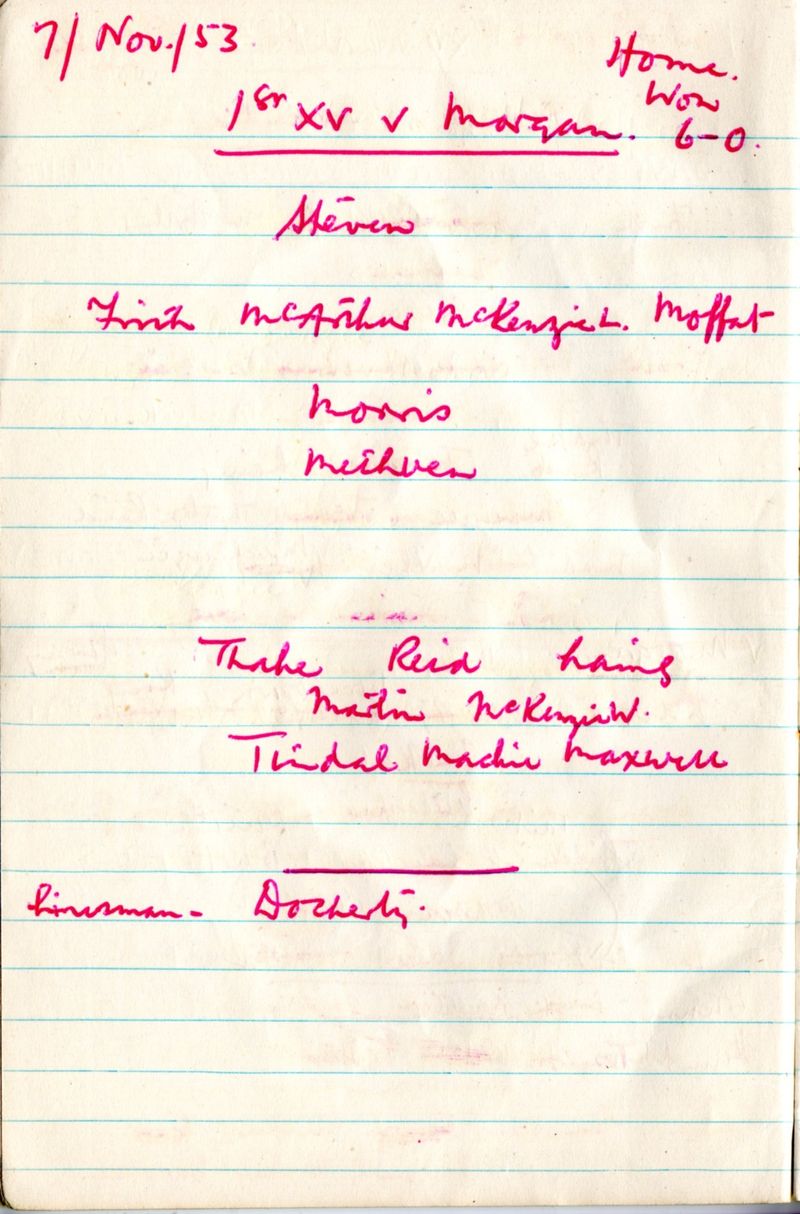 7/ Nov./53.
Home.
Won
6-0.
1st XV v Morgan.
Steven
Firth McArthur McKenzie L. Moffat
Norris
Methven
Thake Reid Laing
Martin McKenzie W.
Tindal Mackie Maxwell
Linesman - Docherty.